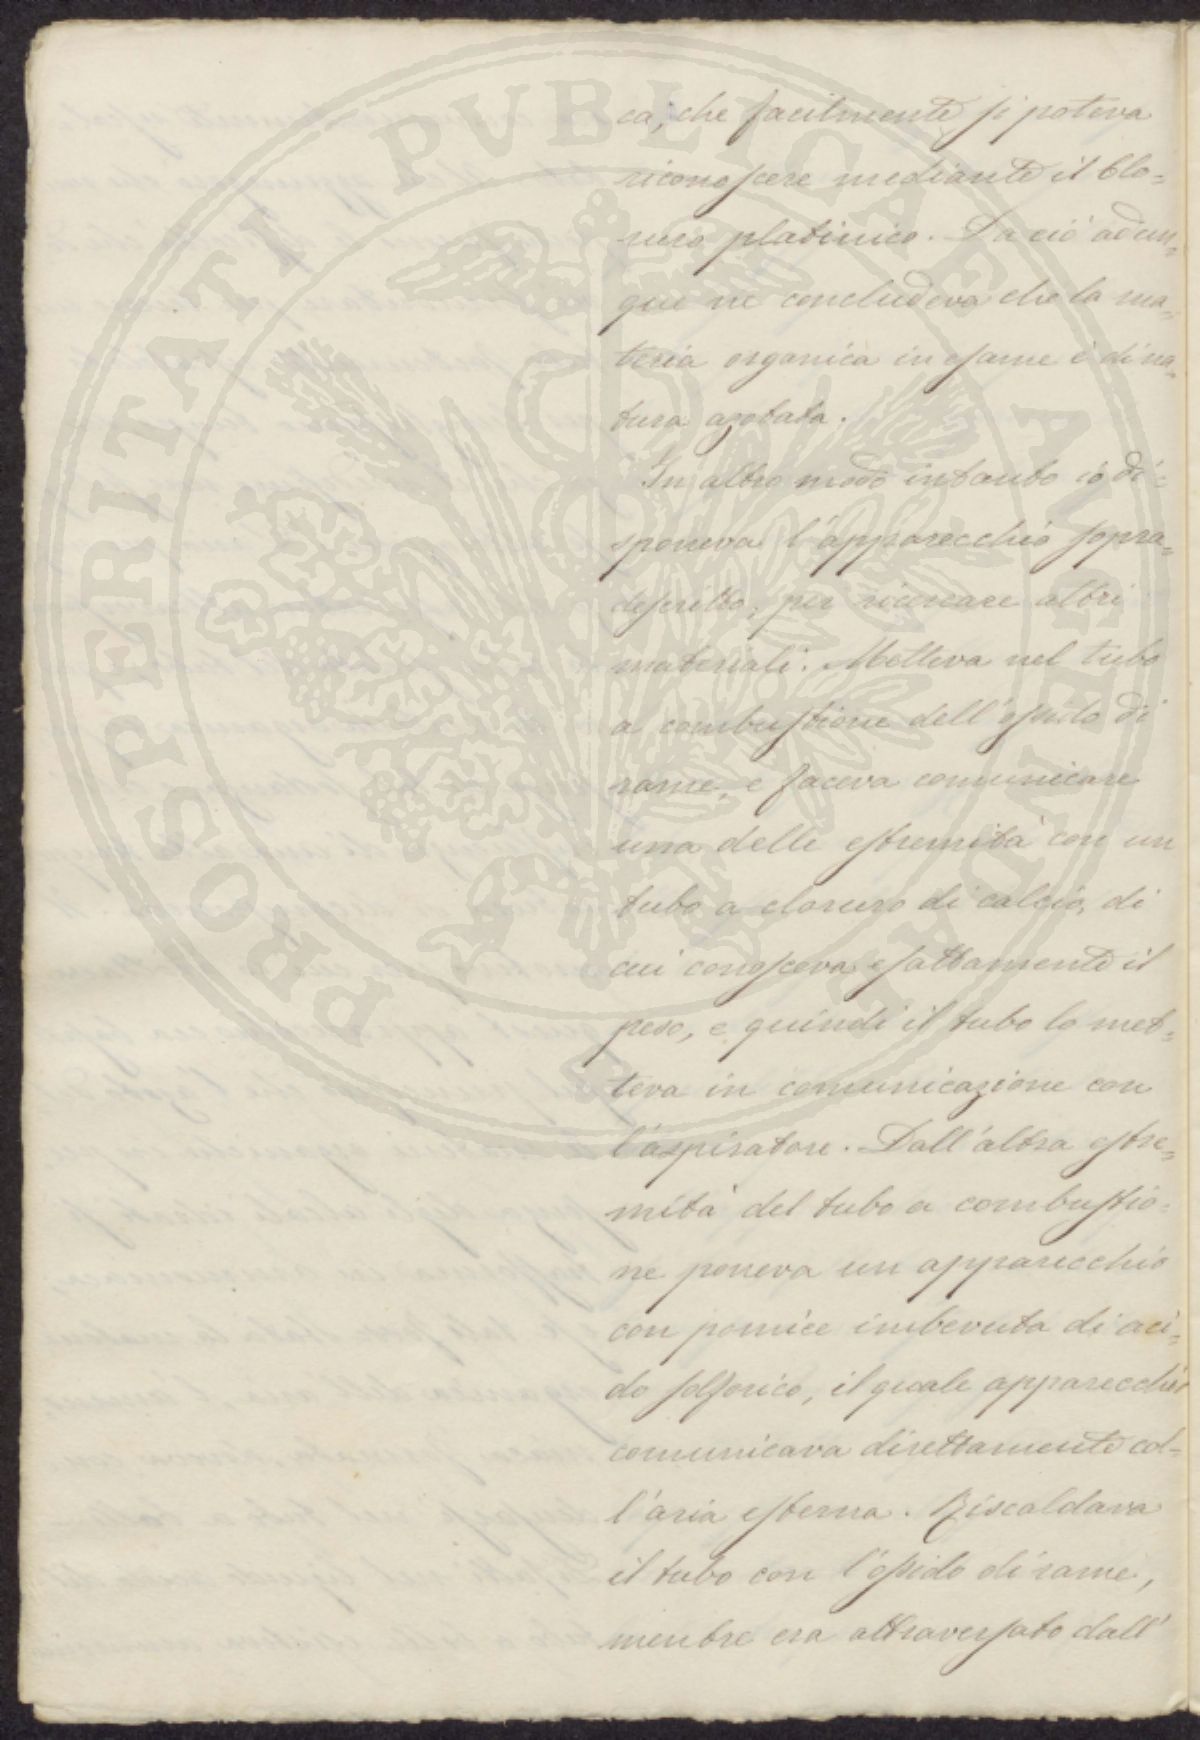 ca, che facilmente si poteva
riconoscere mediante il Clo=
ruro platinico. Da ciò adun=
que ne concludeva che la ma=
teria organica in esame è di na=
tura azotata.
In altro modo intanto io di=
sponeva l'apparecchio sopra=
descritto, per ricercare altri
materiali. Metteva nel tubo
a combustione dell'ossido di
rame, e faceva comunicare
una delle estremità con un
tubo a cloruro di calcio, di
cui conosceva esattamente il
peso, e quindi il tubo lo met=
teva in comunicazione con
l'aspiratore. Dall'altra estre=
mità del tubo a combustio=
ne poneva un apparecchio
con pomice imbevuta di aci=
do solforico, il quale apparecchio
comunicava direttamente col=
l'aria esterna. Riscaldava
il tubo con l'ossido di rame,
mentre era attraversato dall'
PROSPERITATI PVBLICAE AVGENDAE